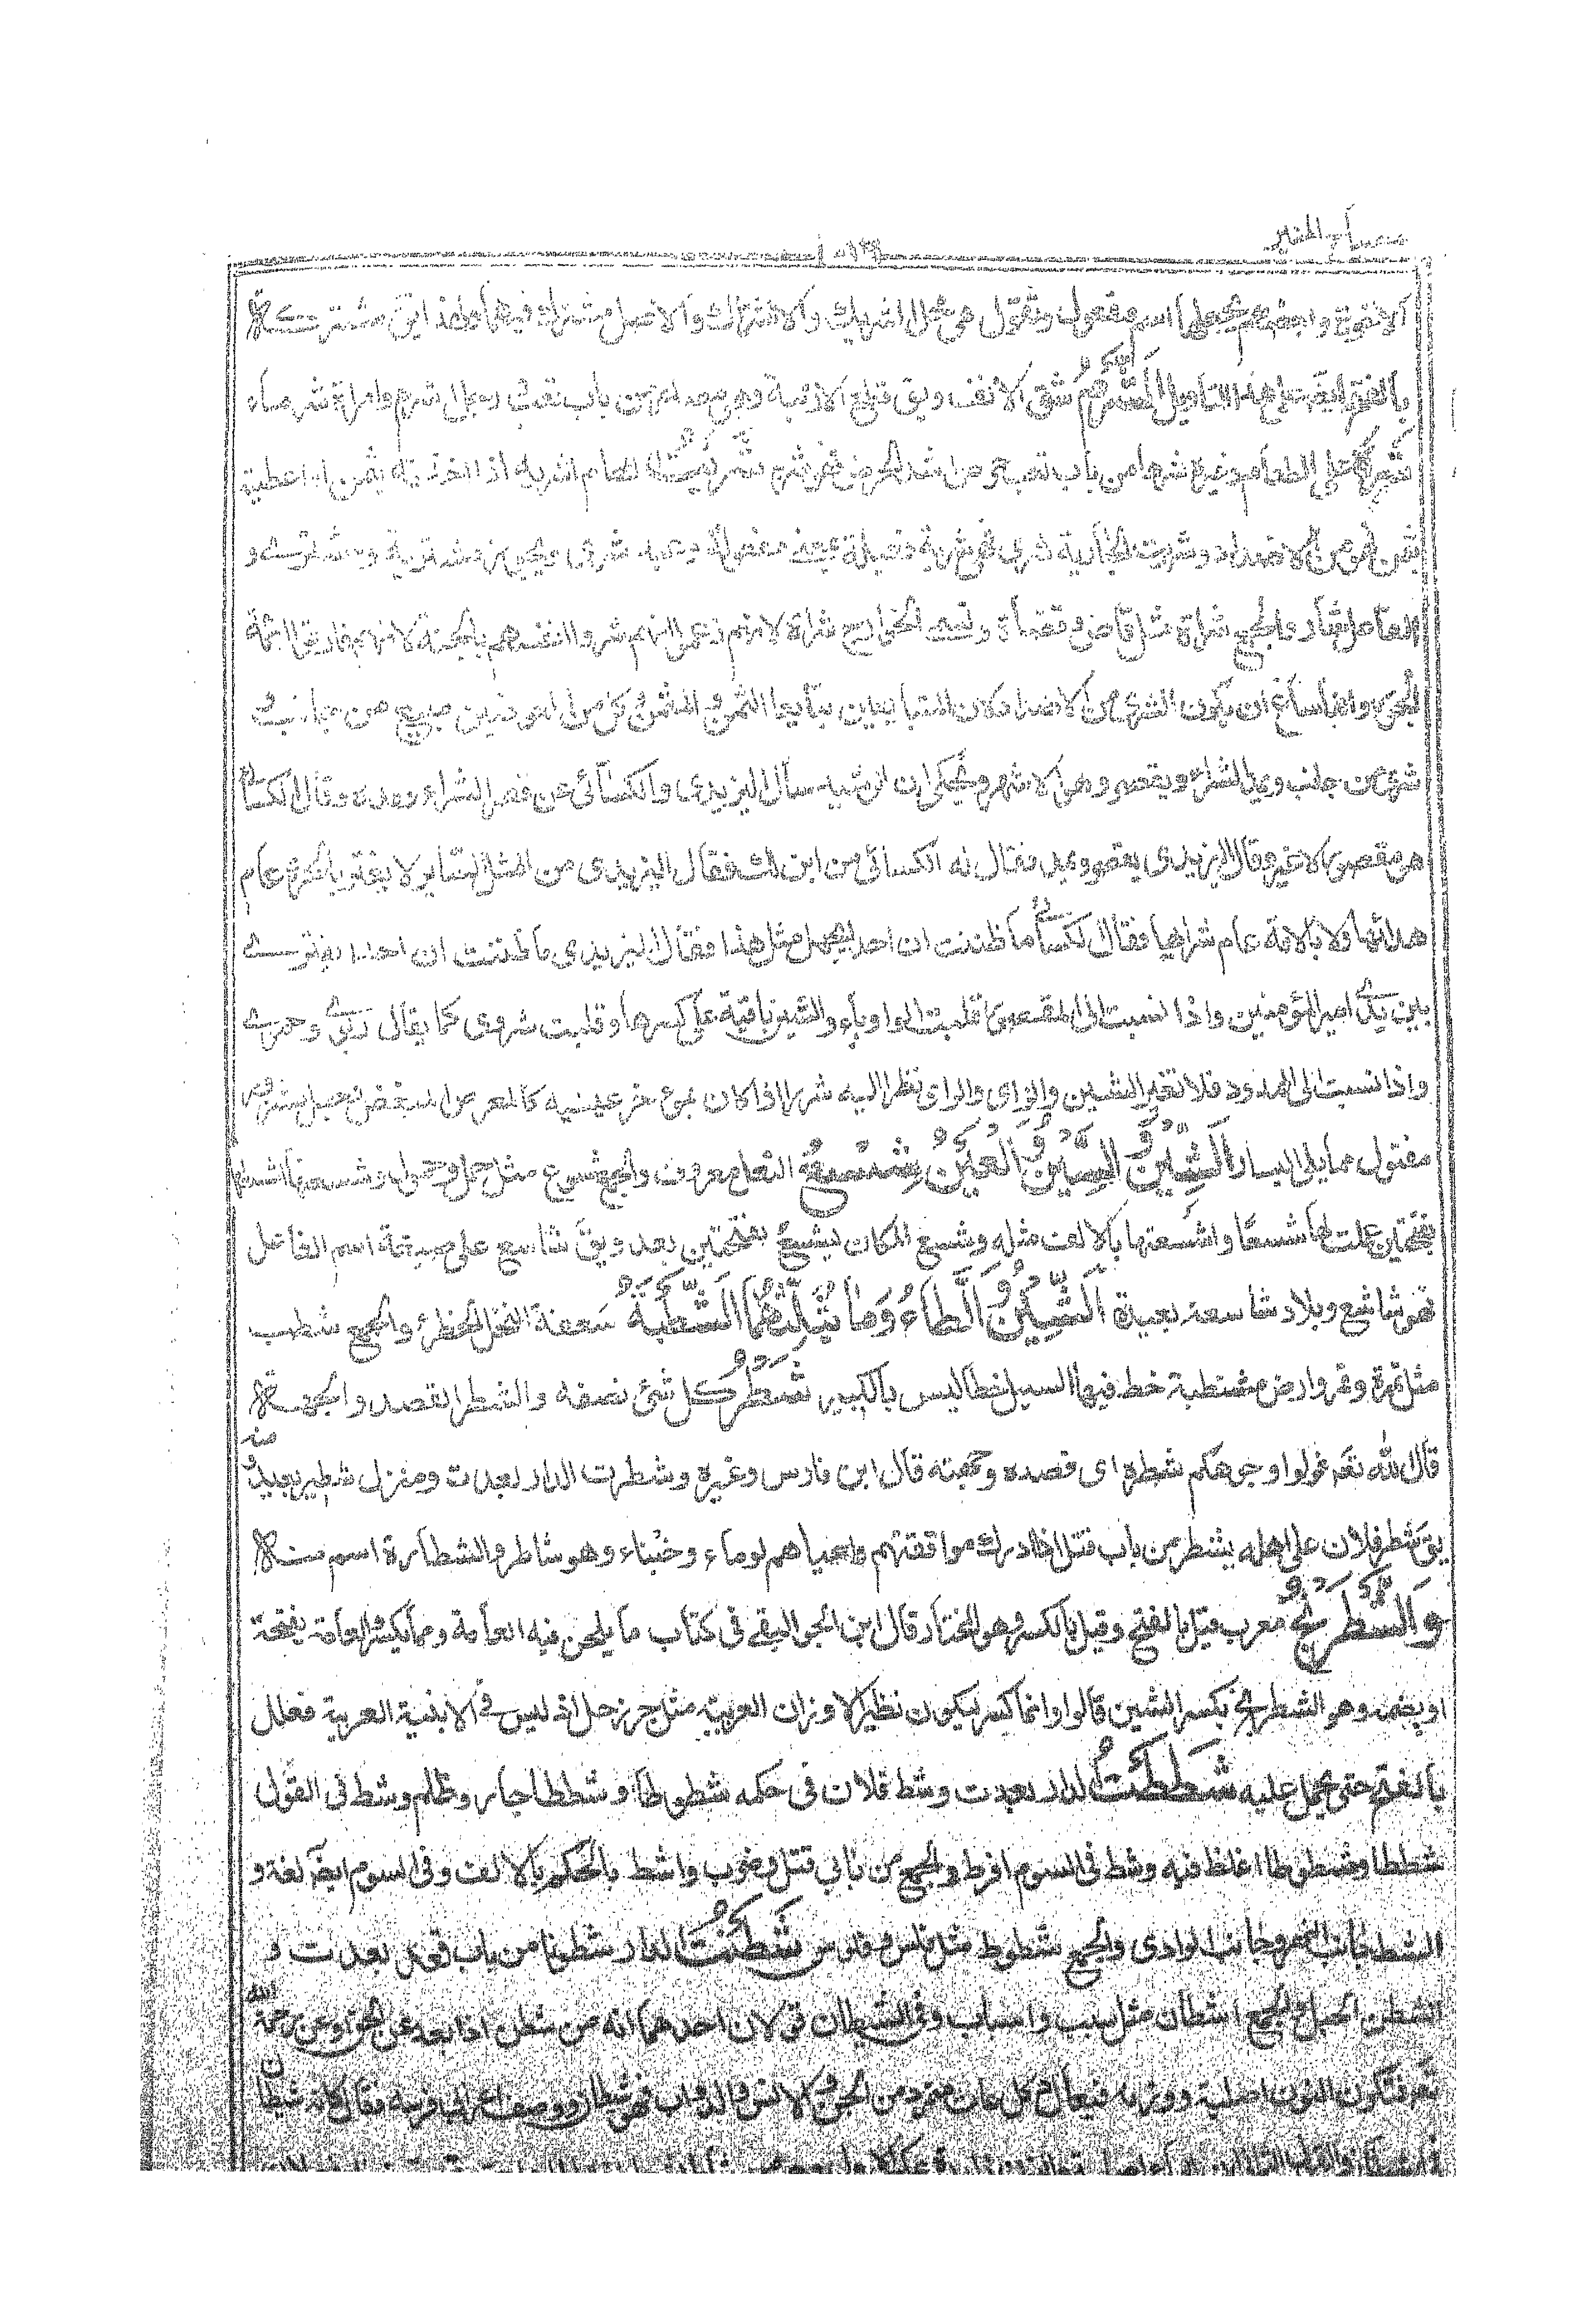 مصباح المنير
الانثوية واجمعهم يجعلها اسم مفعول وتقول هي محل اشتراك والاشتراك والاصل مشترك فيها ولهذا يق مشتركة
بالفتح ايضا على هذا التاويل الشرم شق الانف ويق قطع الارنبة وهو مصدر من باب تعب رجل اشرم وامراة شرماء
شره على الطعام وغيره شرها من باب تعب حرص اشد الحرص فهو شره شريت المتاع اشريه اذا اخذته بثمن او اعطيته
بثمن فهو من الاضداد وشريت الجارية شرى فهي شرية فعيلة بمعنى مفعولة وعبد شرى ويجوز مشترية ومشترى و
الفاعل شار والجمع شراة مثل قاض وقضاة وتسمى الخوارج شراة لانهم زعموا انهم شروا انفسهم بالجنة لانهم فارقوا ائمة
الجور وانما ساغ ان يكون الشرى من الاضداد لان المتبايعين تبايعا الثمن والمثمن فكل من العوضين مبيع من جانب
شرى من جانب ويمد الشراء ويقصر وهو الاشهر ويحكى ان الرشيد سأل اليزيدى والكسائى عن قصر الشراء ومده فقال الكسائى
هو مقصور لا غير وقال اليزيدى يقصر ويمد فقال له الكسائى من اين لك فقال اليزيدى من المثل السائر لا يغتر بالحرة عام
هدائها ولا بالامة عام شرائها فقال الكسائى ما ظننت ان احدا يجهل مثل هذا فقال اليزيدى ما ظننت ان احدا يفترى
بين يدى امير المؤمنين واذا نسبت الى المقصور قلبت الواو ياء والشين باقية على كسرها وقلبت شروى كما يقال ربوى وحموى
واذا نسبت الى الممدود فلا تغير الشين والزاى والراى نظر اليه شزرا اذا كان بمؤخر عينيه كالمعرض المتغضب وحبل مشزور
مفتول مما يلى اليسار الشين والسين والعين شسع النعل معروف والجمع شسوع مثل حمل وحمول وشسعتها اشسعها
بفتحتين عملت لها شسعا واشسعتها بالالف مثله وشسع المكان يشسع بفتحتين بعد ويق شاسع على صيغة اسم الفاعل
فهو شاسع وبلاد شاسعة بعيدة الشين والطاء وما يثلثهما الشطبة سعفة النخل الخضراء والجمع شطب
مثل تمرة وتمر وارض مشطبة خط فيها السيل خطا ليس بالكبير شطر كل شئ نصفه والشطر القصد والجهة
قال الله تعم فولوا وجوهكم شطره اى قصده وجهته قال ابن فارس وغيره وشطرت الدار بعدت ومنزل شطير بعيد ومنه
يق شطر فلان على اهله يشطر من باب قتل اذا ترك موافقتهم واعياهم لوماء وخبثاء وهو شاطر والشطارة اسم منه
والشطرنج معرب قيل بالفتح وقيل بالكسر وهو المختار قال ابن الجواليقى فى كتاب ما يلحن فيه العامة ومما يكسر والعامة بفتحة
او بضمه وهو الشطرنج بكسر الشين قالوا وانما كسر ليكون نظير الاوزان العربية مثل جردحل اذ ليس فى الابنية العربية فعلل
بالفتح حتى يحمل عليه شطت الدار بعدت وشط فلان فى حكمه شطوطا وشططا جار وظلم وشط فى القول
شططا وشطوطا اغلظ فيه وشط فى السوم افرط والجميع من بابى قتل وضرب واشط بالحكم بالالف وفى السوم ايضا لغة و
الشط جانب النهر وجانب الوادى والجمع شطوط مثل فلس وفلوس شطنت الدار شطونا من باب قعد بعدت و
الشطن الحبل والجمع اشطان مثل سبب واسباب وفى الشيطان قولان احدهما انه من شطن اذا بعد عن الحق او عن رحمة الله
تعم فتكون النون اصلية ووزنه فيعال وكل عات متمرد من الجن والانس والدواب فهو شيطان ووصف اعرابى فرسه فقال كانه شيطان